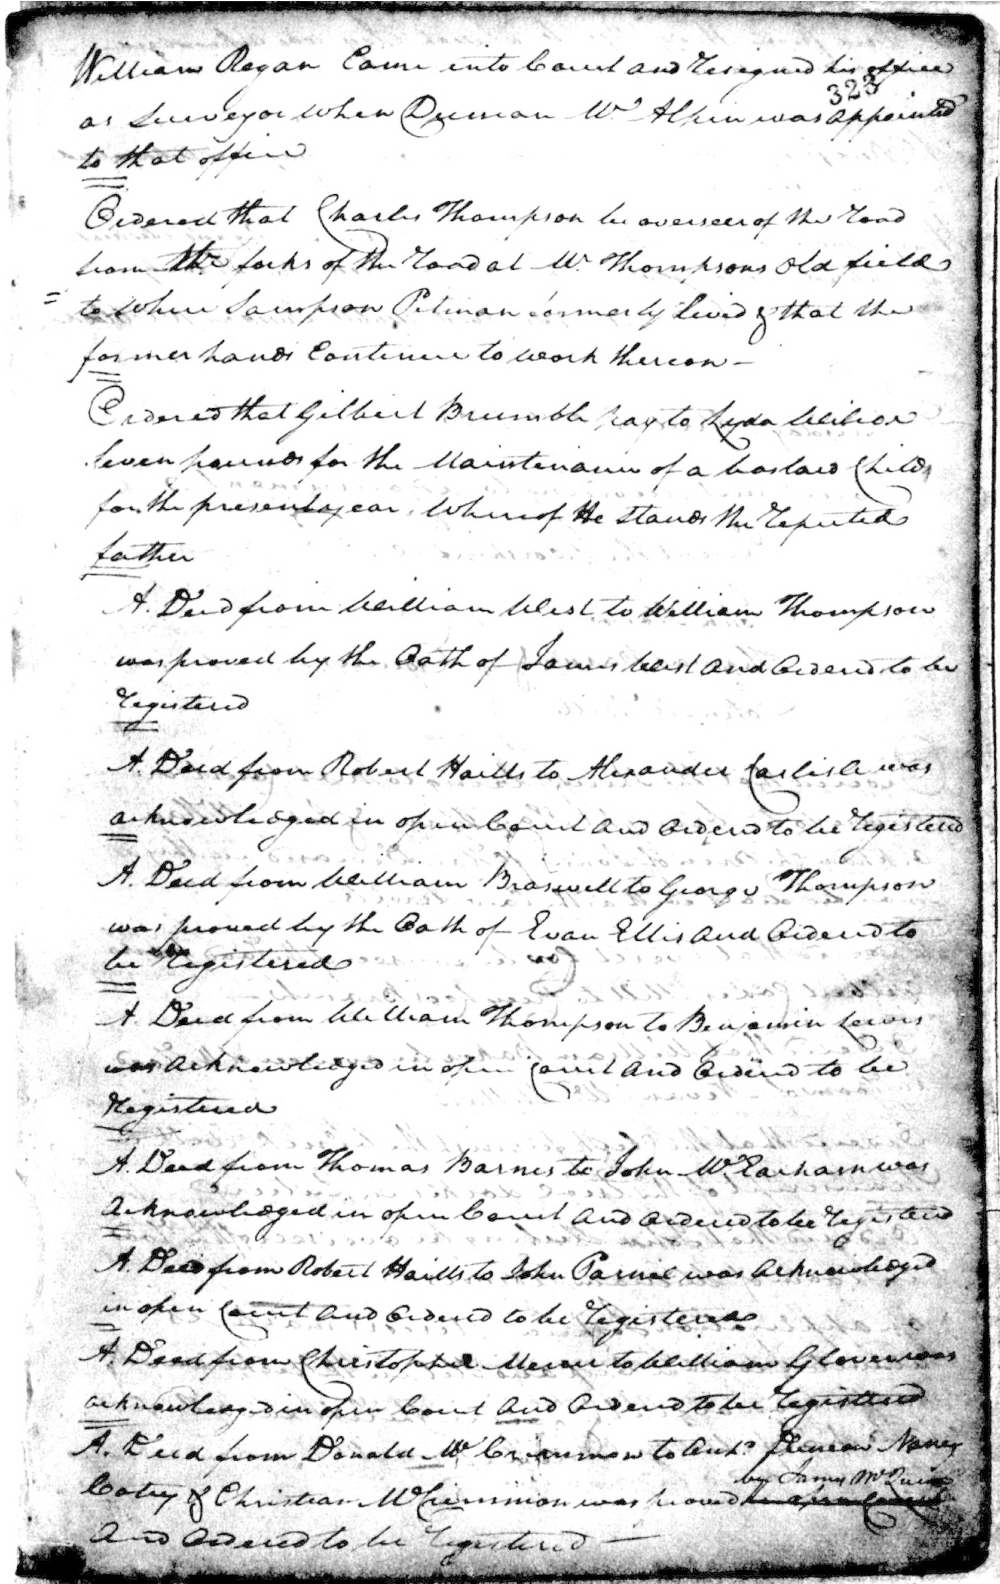 William Regan Came into Court and resigned his office
323
as Surveyor when Duncan Mc Alpin was appointed
to that office
Ordered that Charles Thompson be overseer of the road
from the forks of the road at Mr. Thompsons Old field
to where Sampson Pitman formerly lived & that the
former hands Continue to work thereon —
Ordered that Gilbert Brumble pay to Lyda
Seven pounds for the Maintenance of a bastard Child
for the present year, whereof He stands the reputed
father
A. Deed from William West to William Thompson
was proved by the Oath of James West and Ordered to be
registered
A. Deed from Robert Hails to Alexander Carlisle was
acknowledged in open Court and Ordered to be registered
A. Deed from William Braswell to George Thompson
was proved by the Oath of Evan Ellis and Ordered to
be registered
A Deed from William Thompson to Benjamin Lewis
was acknowledged in open Court and Ordered to be
registered
A. Deed from Thomas Barnes to John Mc Eacharn was
acknowledged in open Court and Ordered to be registered
A. Deed from Robert Hails to John was acknowledged
in open Court and Ordered to be registered
A. Deed from Christopher to William Glover was
acknowledged in open Court and Ordered to be registered
A. Deed from Donald Mc Crimmon to Duncan Nancy
by James McQuin
Catey & Christian McCrimmon was proved in open Court
and Ordered to be registered —